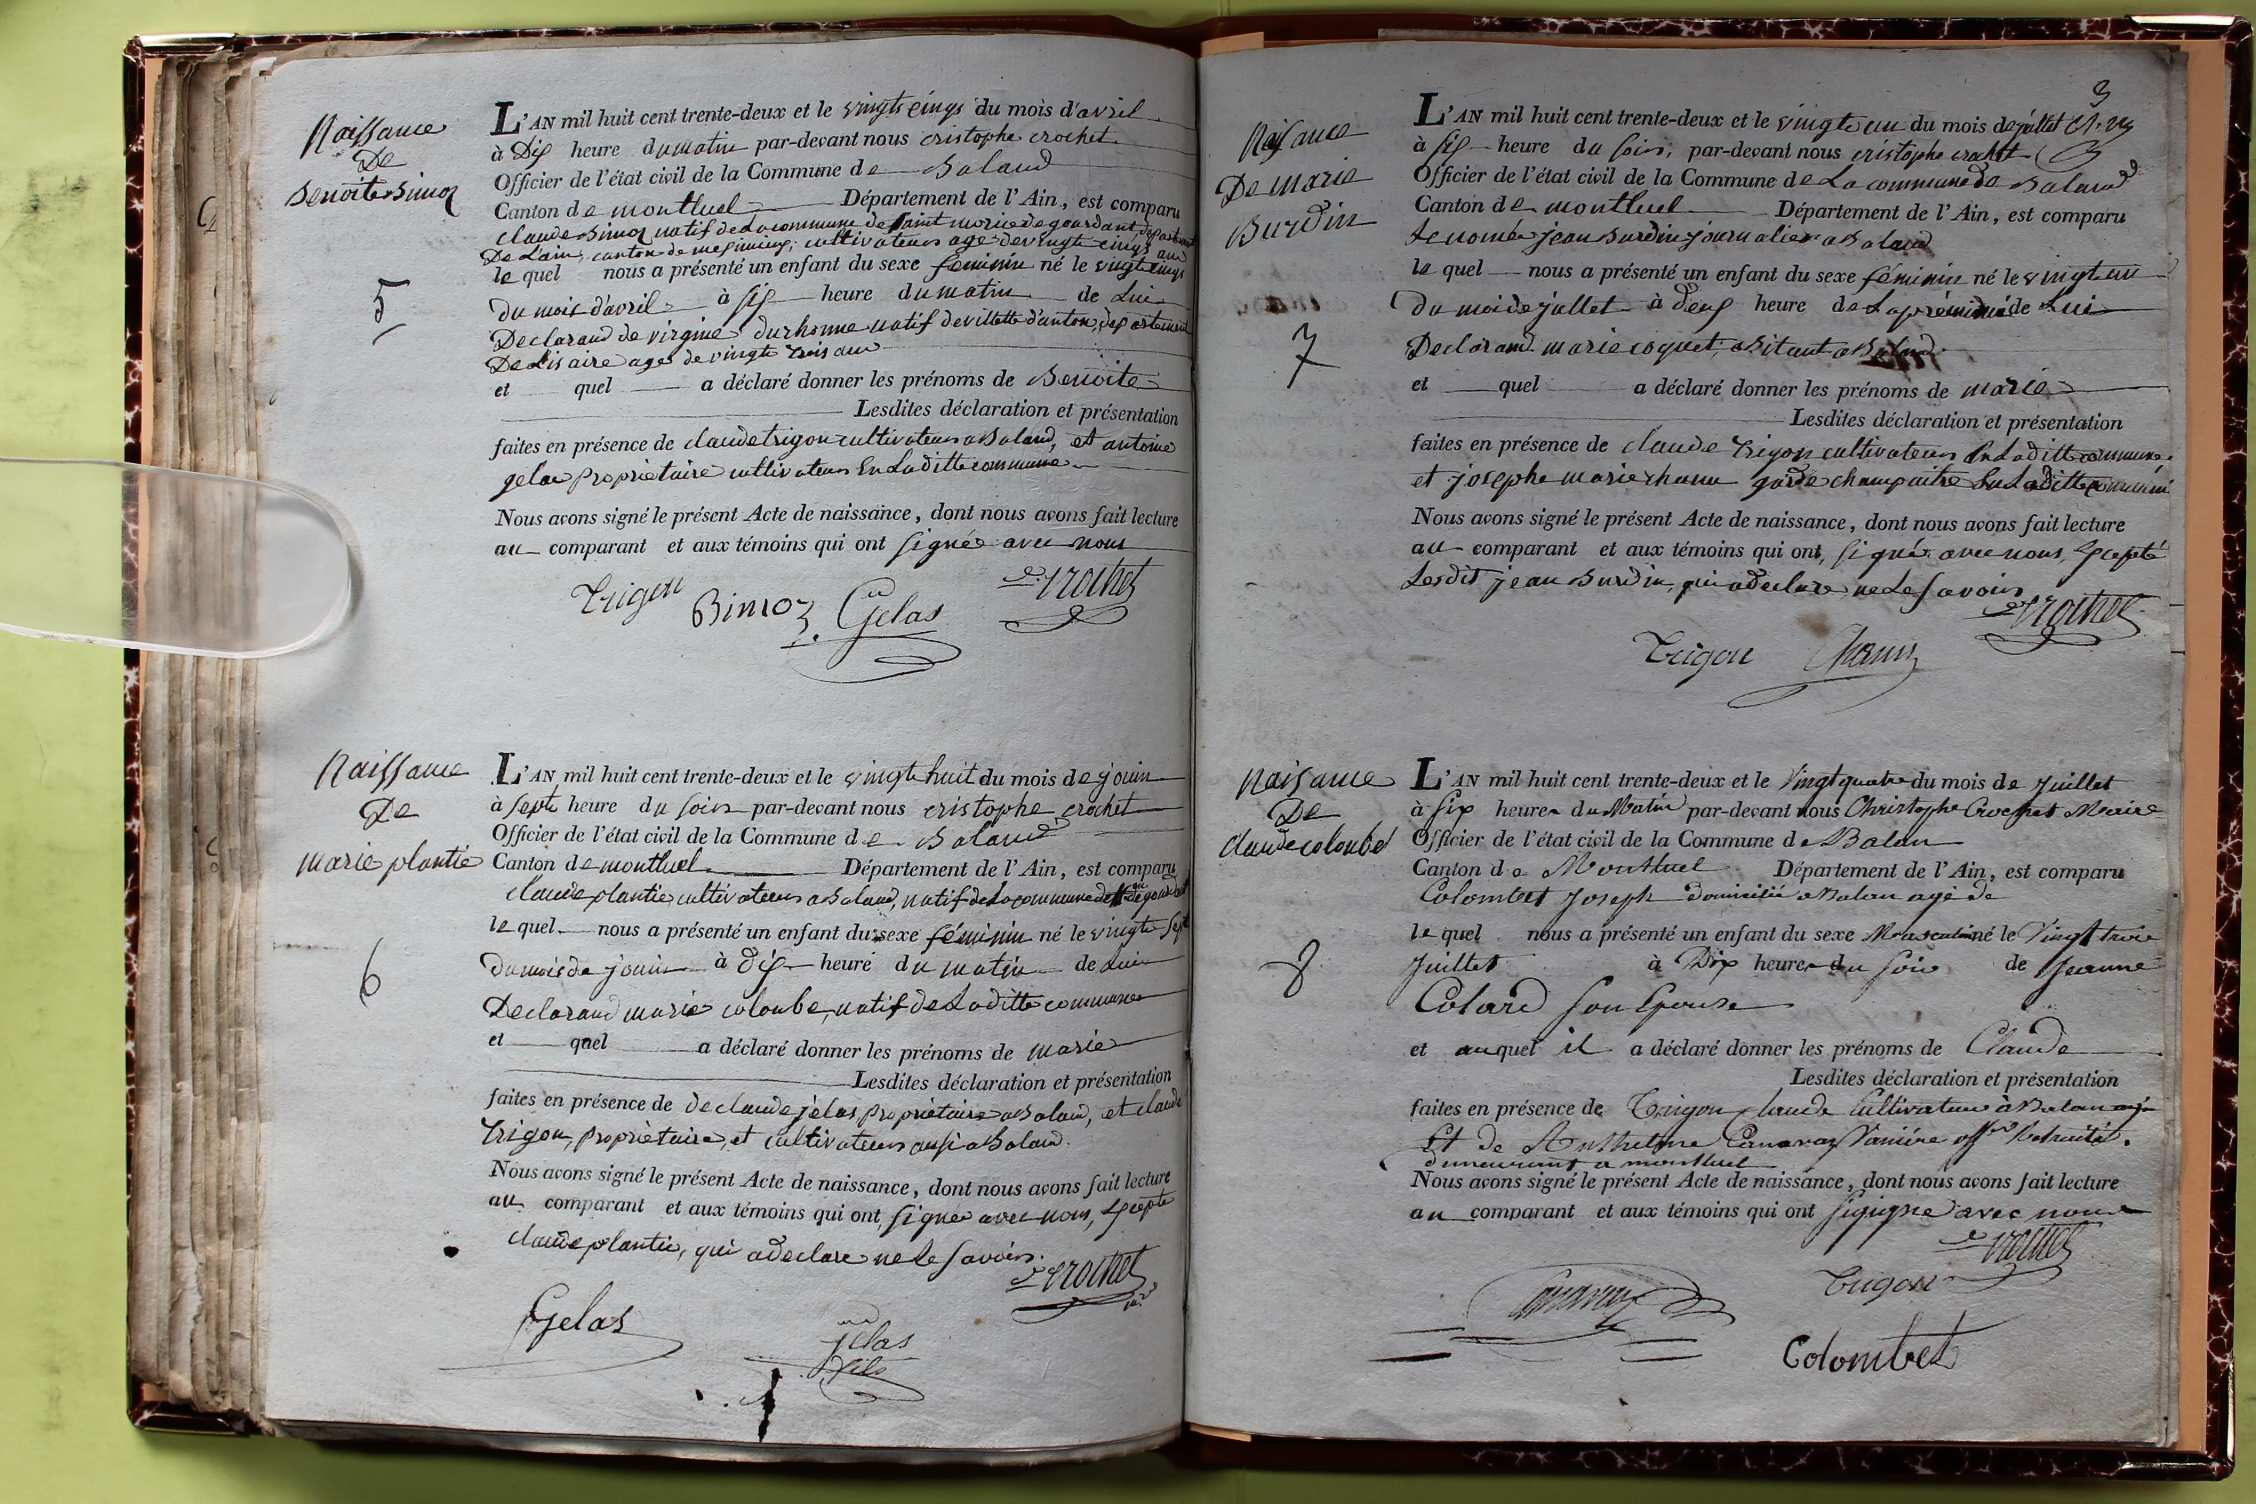 Naissance
De
Benoite Bimoz
5
L'AN mil huit cent trente-deux et le vingts cinqs du mois d'avril
à Dix heure du matin par-devant nous cristophe crochet
Officier de l'état civil de la Commune de Baland
Canton de montluel Département de l'Ain, est comparu
claude Bimoz natif de La commune de Saint morice de gourdant, departement
De Lain, canton de meximieux, cultivateur age de vingt cinqs ans
le quel nous a présenté un enfant du sexe féminin né le vingt cinqs
du mois d'avril à six heure du matin de Lui
Declarand de virginie durhonne natif de villette d'anton, departement
De Lisaire agee de vingte trois ans
et quel a déclaré donner les prénoms de Benoite
Lesdites déclaration et présentation
faites en présence de claude trigon cultivateur a Baland, et antoine
gelas proprietaire cultivateur En Laditte commune
Nous avons signé le présent Acte de naissance, dont nous avons fait lecture
au comparant et aux témoins qui ont signée avec nous
Trigon Bimoz Gelas Crochet
Naissance
De
marie plantie
6
L'AN mil huit cent trente-deux et le vingte huit du mois de jouin
à sept heure du soir par-devant nous cristophe crochet
Officier de l'état civil de la Commune de Baland
Canton de montluel Département de l'Ain, est comparu
claude plantie cultivateur a Baland, natif de La commune de
le quel nous a présenté un enfant du sexe féminin né le vingte sept
du mois de jouin à dix heure du matin de Lui
Declarand marie coloube, natif de Laditte commune
et quel a déclaré donner les prénoms de marie
Lesdites déclaration et présentation
faites en présence de de claude jelas proprietaire a Baland, et claude
trigon, proprietaire, et cultivateur ausi a Baland.
Nous avons signé le présent Acte de naissance, dont nous avons fait lecture
au comparant et aux témoins qui ont signée avec nous, Excepte
claude plantie, qui a declare ne le savoir.
Crochet
Gelas jelas
fils
3
Naisance
De marie
Burdin
7
L'AN mil huit cent trente-deux et le vingte un du mois de juillet
à six heure du soir, par-devant nous cristophe crochet
Officier de l'état civil de la Commune de La commune de Baland
Canton de montluel Département de l'Ain, est comparu
Le nomée jean Burdin journalier a Baland
le quel nous a présenté un enfant du sexe féminin né le vingte un
du moi de jullet à deux heure de Laprémidi de Lui
Declarand marie coquet, abitant a Baland
et quel a déclaré donner les prénoms de marie
Lesdites déclaration et présentation
faites en présence de claude trigon cultivateur En Laditte commune
et josephe marie chanu garde champaitre En Laditte commune
Nous avons signé le présent Acte de naissance, dont nous avons fait lecture
au comparant et aux témoins qui ont, signé avec nous, Excepté
Lesdit jean Burdin, qui a declare ne Le savoir
Crochet
Trigon Chanu
Naisance
De
claude coloubet
8
L'AN mil huit cent trente-deux et le Vingt quatre du mois de Juillet
à six heures du Matin par-devant nous Christophe Crochet Maire
Officier de l'état civil de la Commune de Balan
Canton de Montluel Département de l'Ain, est comparu
Colombet Joseph domicilié a Balan agé de
le quel nous a présenté un enfant du sexe Masculin né le Vingt trois
Juillet à Dix heures du soir de Jeanne
Colard son Epouse
et auquel il a déclaré donner les prénoms de Claude
Lesdites déclaration et présentation
faites en présence de Trigon Claude Cultivateur à Balan
Et de Anthelme Canavaz
demeurant a montluel
Nous avons signé le présent Acte de naissance, dont nous avons fait lecture
au comparant et aux témoins qui ont sigigné avec nous
Crochet
Canavaz Trigon
Colombet